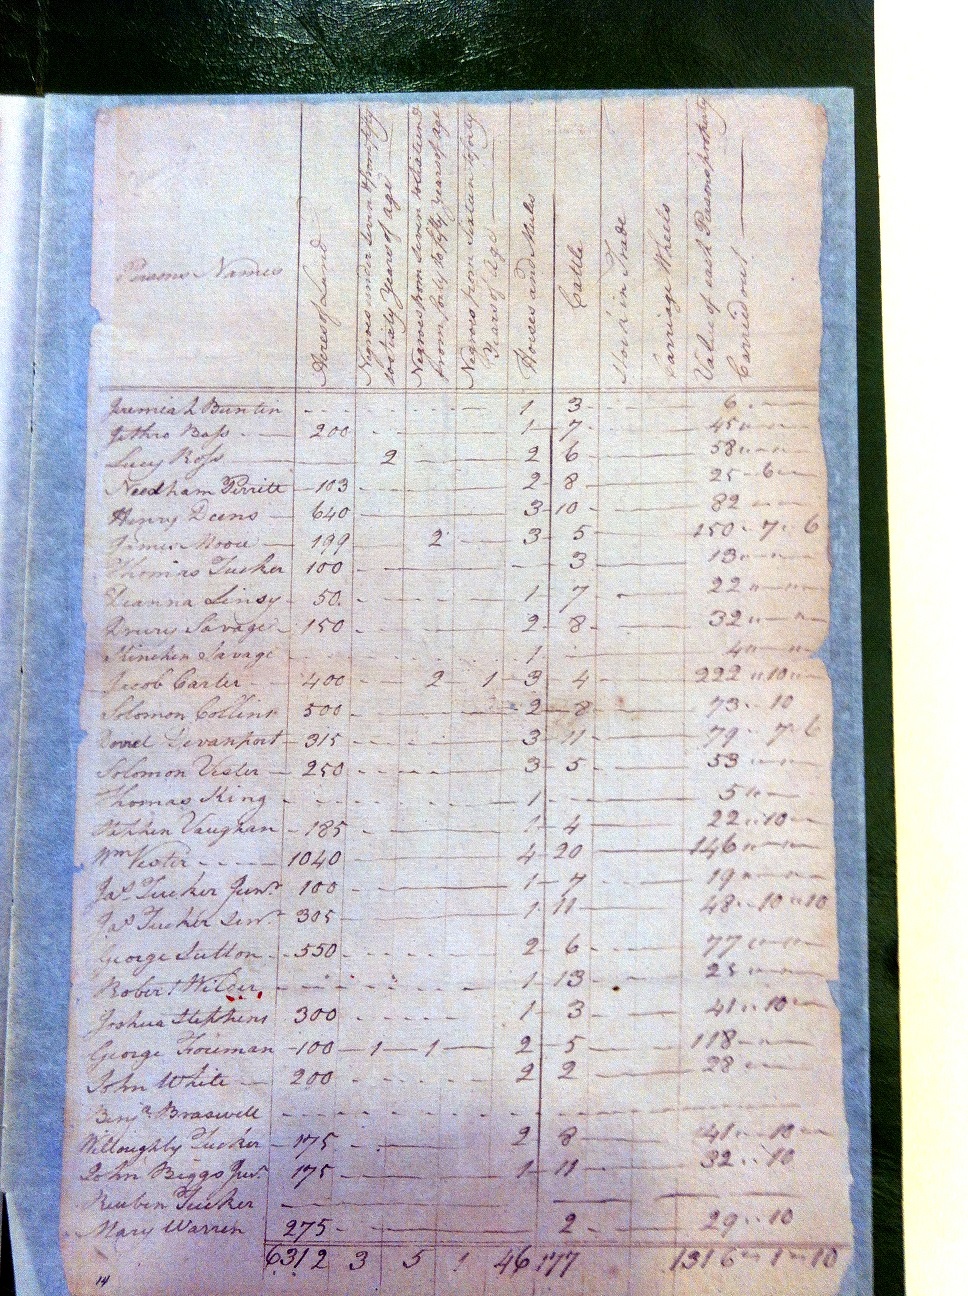 Persons Names
Acres of Land
Negroes under seven & from fifty to sixty years of age
Negroes from seven to sixteen & from forty to fifty years of age
Negroes from sixteen to forty Years of Age
Horses and Mules
Cattle
Stock in Trade
Carriage Wheels
Value of each Persons property Carried out
Jeremiah Buntin 1 3 6
Jethro Bass 200 1 7 45
Lucy Ross 2 2 6 58
Needham Perritt 103 2 8 25 6
Henry Deens 640 3 10 82
James Moore 199 2 3 5 150 7 6
Thomas Tucker 100 3 13
Deanna Linsy 50 1 7 22
Drury Savage 150 2 8 32
Kinchen Savage 1 4
Jacob Carter 400 2 1 3 4 222 10
Solomon Collins 500 2 8 73 10
Devanport 315 3 11 79 7 6
Solomon Vester 250 3 5 53
Thomas King 1 5
Stephen Vaughan 185 1 4 22 10
Wm Vester 1040 4 20 146
Jas Tucker Junr 100 1 7 19
Jas Tucker Senr 305 1 11 48 10 10
George Sutton 550 2 6 77
Robert Wilder 1 13 25
Joshua Stephens 300 1 3 41 10
George Foreman 100 1 1 2 5 118
John White 200 2 2 28
Benja Braswell
Willoughby Tucker 175 2 8 41 10
John Biggs Junr 175 1 11 32 10
Reuben Tucker
Mary Warren 275 2 29 10
6312 3 5 1 46 177 1316 1 10
14